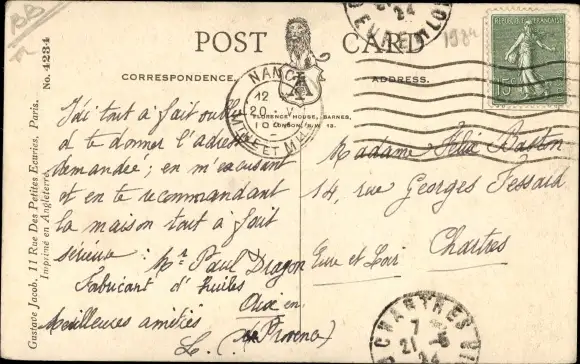 BB
POST CARD
1924
CORRESPONDENCE.
ADDRESS.
FLORENCE HOUSE, BARNES,
LONDON, S.W. 13.
REPUBLIQUE FRANÇAISE
15c
NANCY
12
20 - V
MEURTHE ET M
CHARTRES
7
21 - 5
24
No. 4234
Gustave Jacob, 11 Rue Des Petites Ecuries, Paris.
Imprimé en Angleterre.
J'ai tout à fait oublié
de te donner l'adresse
demandée ; en m'excusant
et en te recommandant
la maison tout à fait
sérieuse : Mr Paul Dragon
Fabricant d'huiles
Aix en
(de Provence)
Meilleures amitiés
L.
Madame Barton
14, rue Georges Fessard
Chartres
Eure et Loir